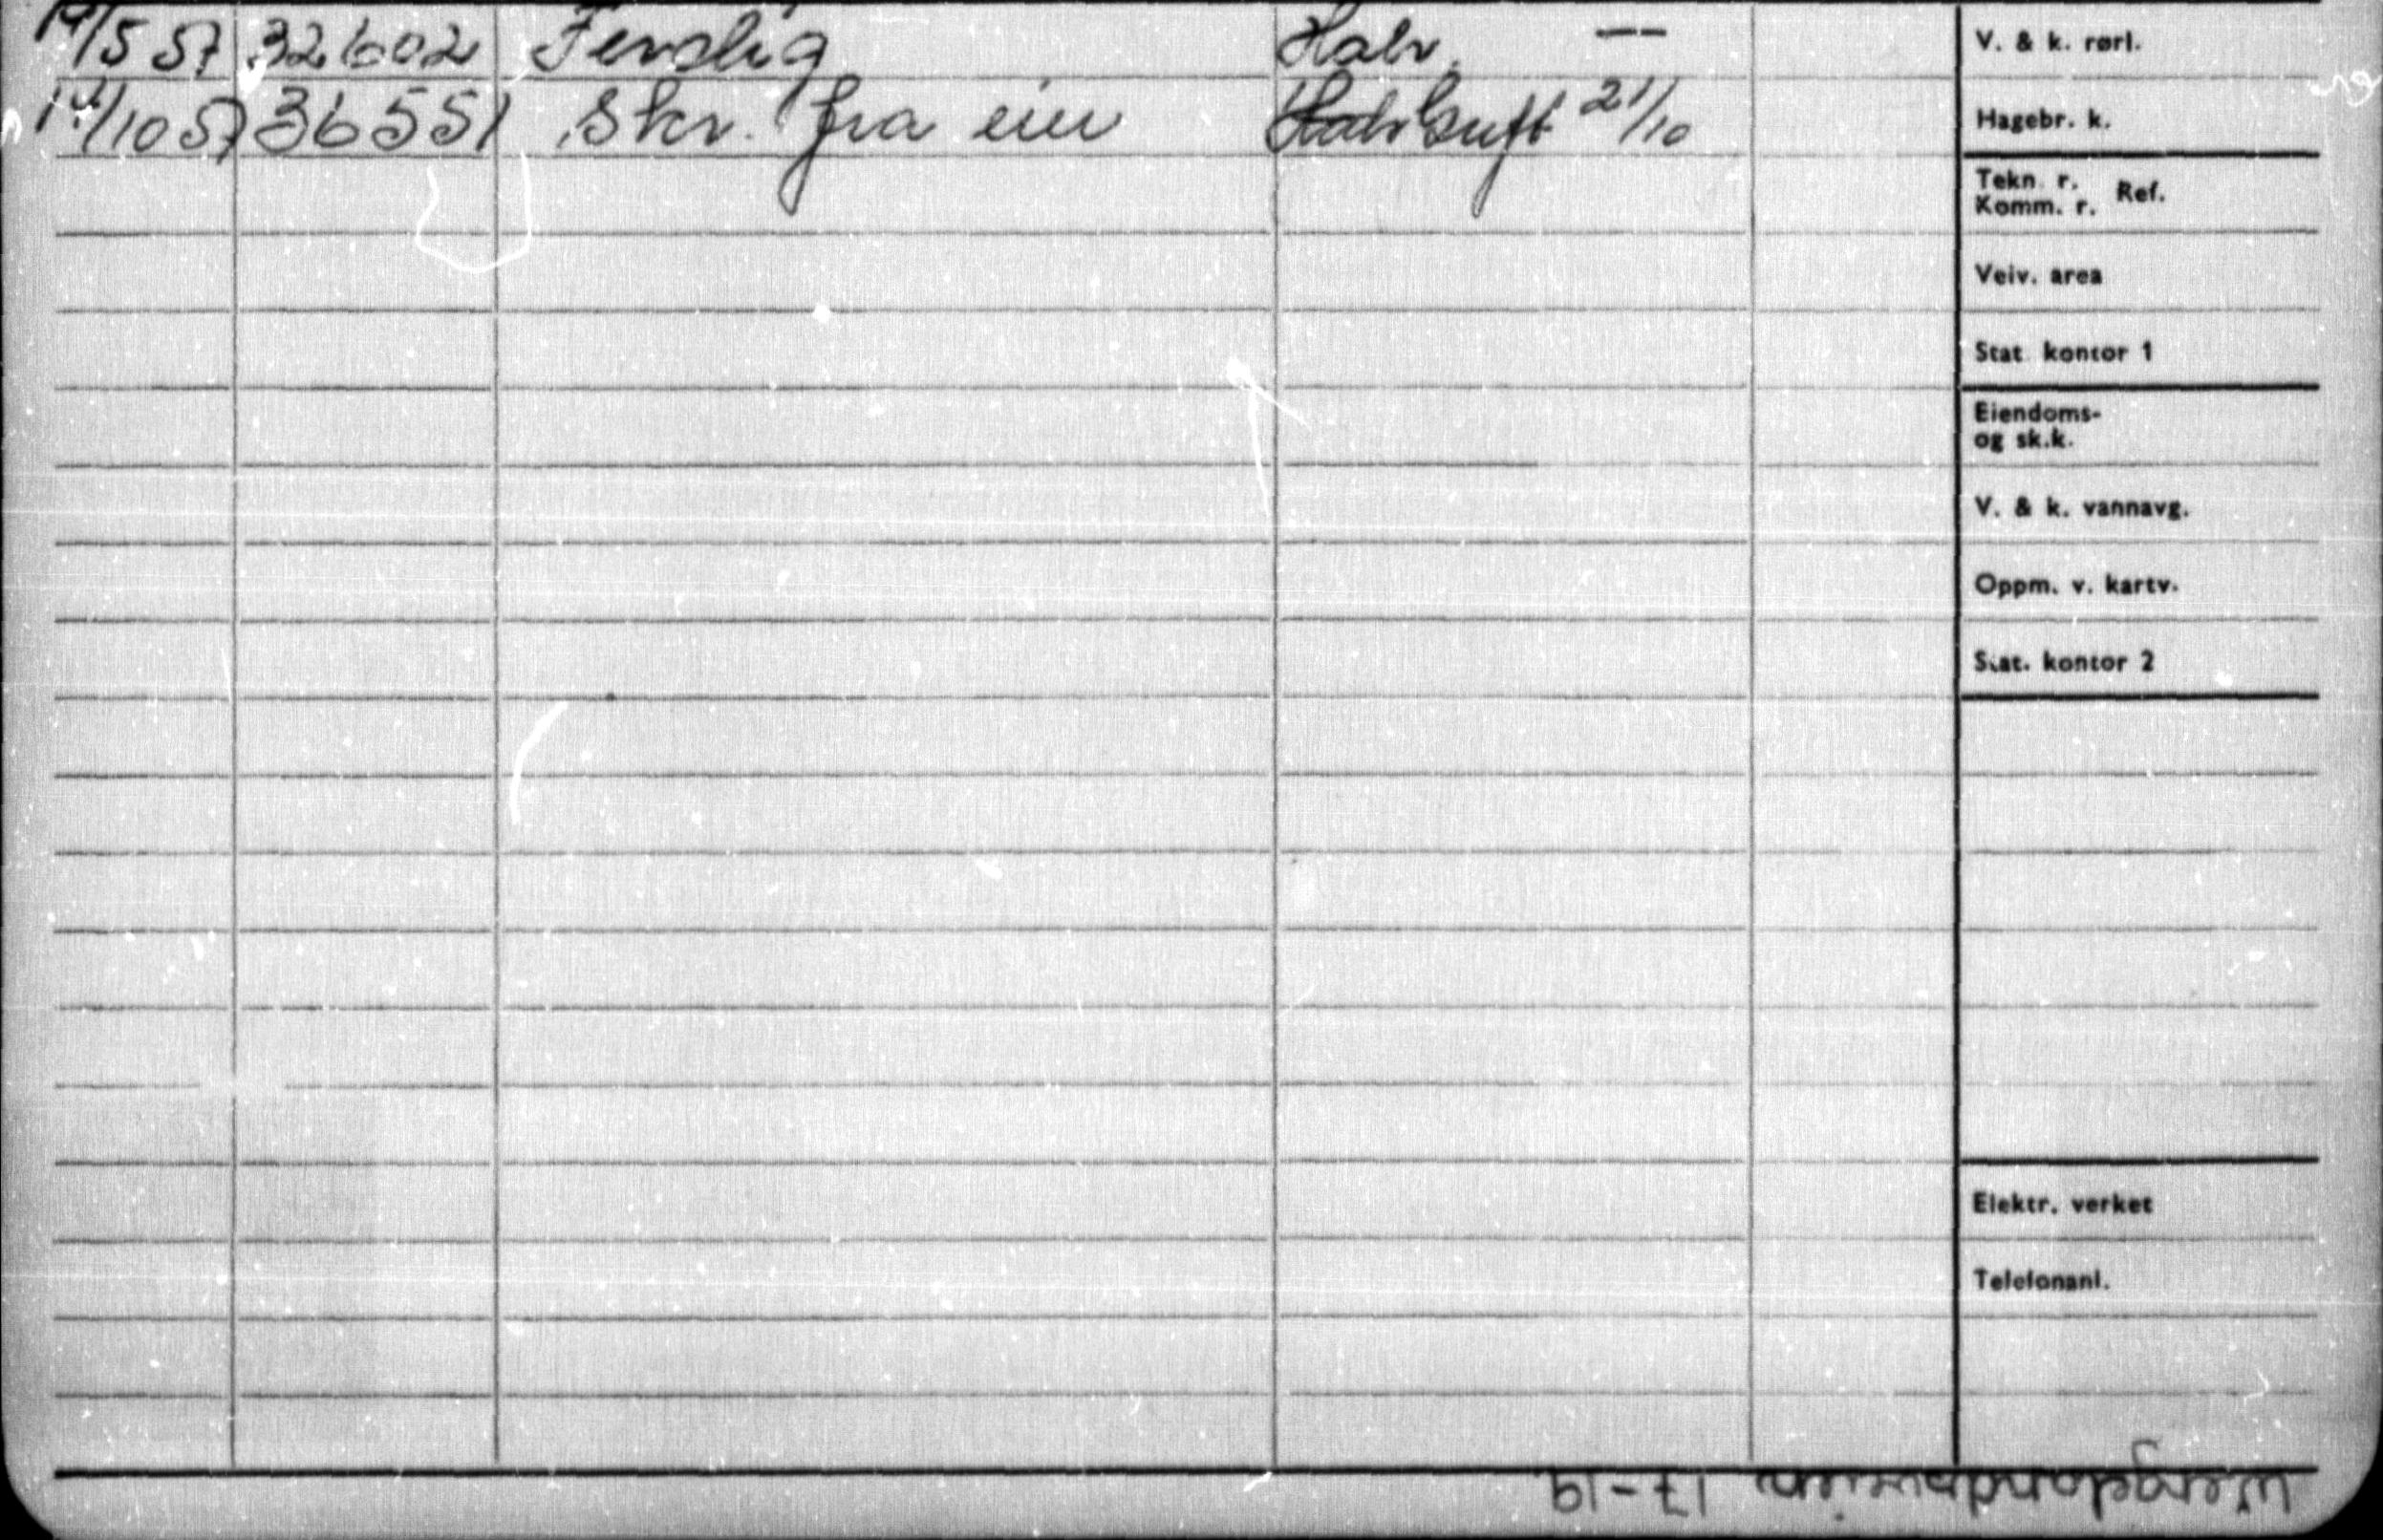 14/5 57 32602 Ferdig Halv. —
14/10 57 36551 Skr. fra eier Halv Guft 21/10
V. & k. rørl.
Hagebr. k.
Tekn. r. Ref.
Komm. r.
Veiv. area
Stat. kontor 1
Eiendoms-
og sk.k.
V. & k. vannavg.
Oppm. v. kartv.
Stat. kontor 2
Elektr. verket
Telefonanl.
Wergelandsveien 17-19